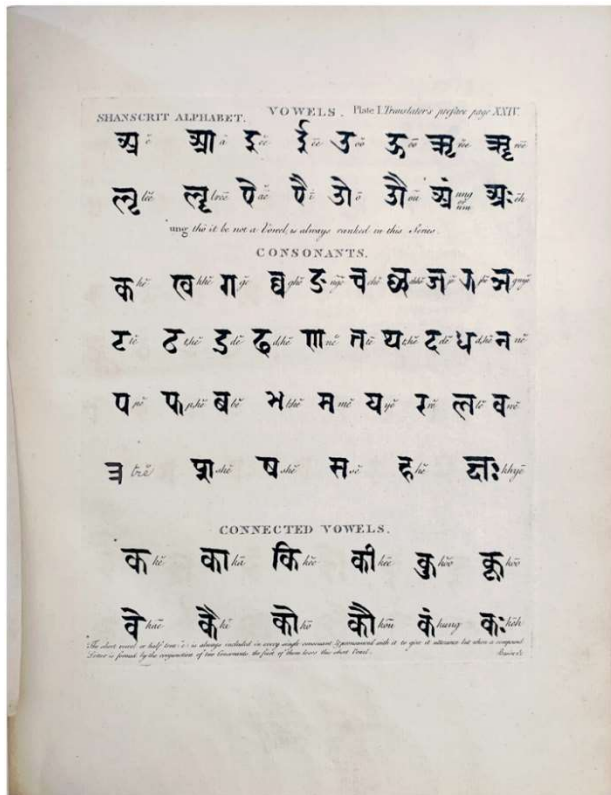 SHANSCRIT ALPHABET. VOWELS. Plate I. Translator's preface page XXIV.
अ ĕ आ ā इ ĕĕ ई ēē उ ŏŏ ऊ ōō ऋ rĕĕ ॠ rēē
ऌ lĕĕ ॡ lrēē ऐ ī उो ō उौ ōū अं ung अः ĕh
ung tho' it be not a Vowel, is always ranked in this Series.
CONSONANTS.
क kĕ ख khĕ ग gĕ घ ghĕ ङ ngĕ च chĕ छ ज jĕ ञ
ट tĕ ठ t,hĕ ड dĕ ढ d,hĕ ण nĕ त tĕ थ t,hĕ द dĕ ध d,hĕ न nĕ
प pĕ फ p,hĕ ब bĕ भ bhĕ म mĕ य yĕ र rĕ ल lĕ व vĕ
trĕ shĕ ष shĕ स sĕ ह hĕ khyĕ
CONNECTED VOWELS.
क kĕ का kā कि kĕĕ की kēē कु kŏŏ कू kōō
के kāe कै kī को kō कौ kōū कं kung कः kĕh
The short vowel or half tone ĕ is always included in every single consonant & pronounced with it to give it utterance but when a compound
Letter is formed by the conjunction of two Consonants the first of them loses this short Vowel.